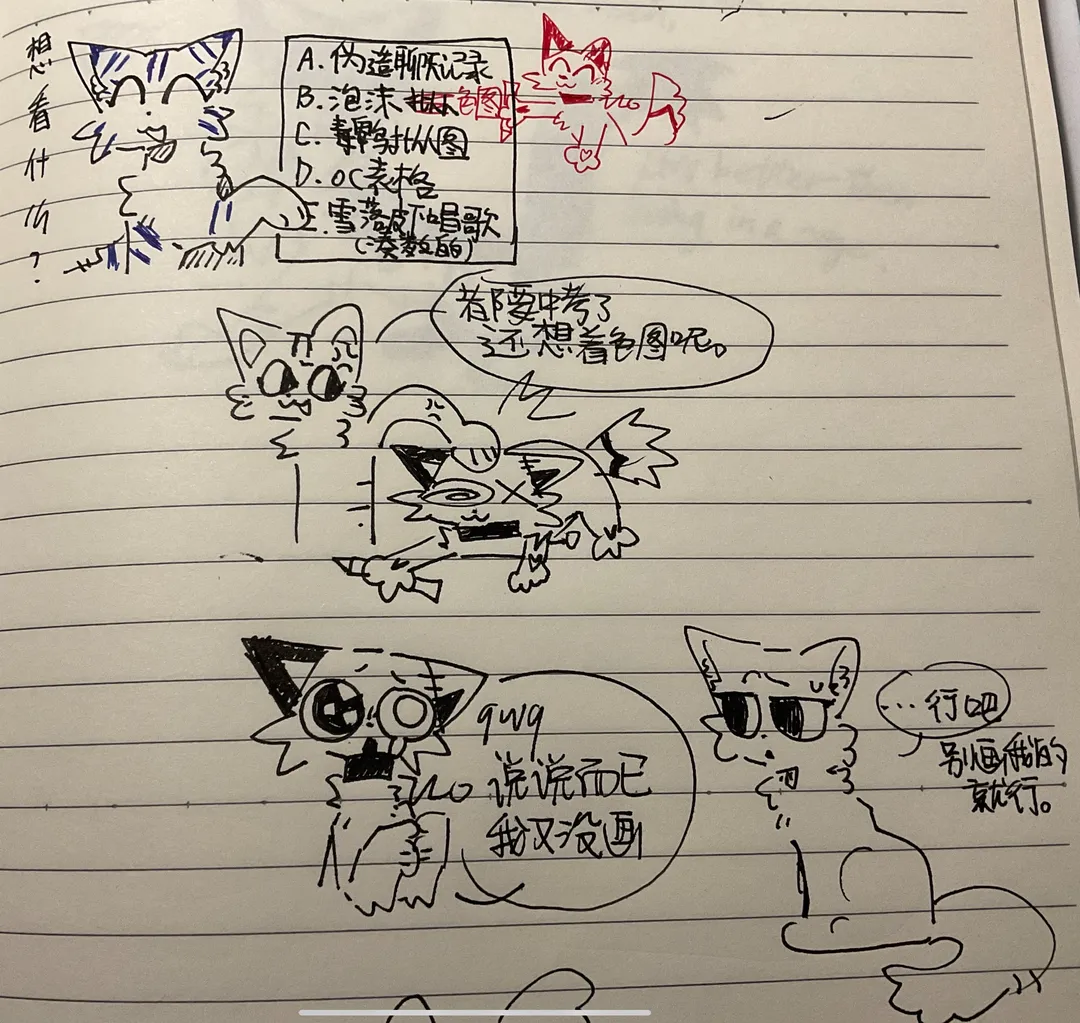 想看什么?
A.伪造聊天记录
B.泡沫 色图
C.毒鸭 图
D.OC表格
E.雪落 唱歌
(凑数的)
都要中考了
还想着色图呢。
qwq
说说而已
我又没画
…行吧
别画我的
就行。